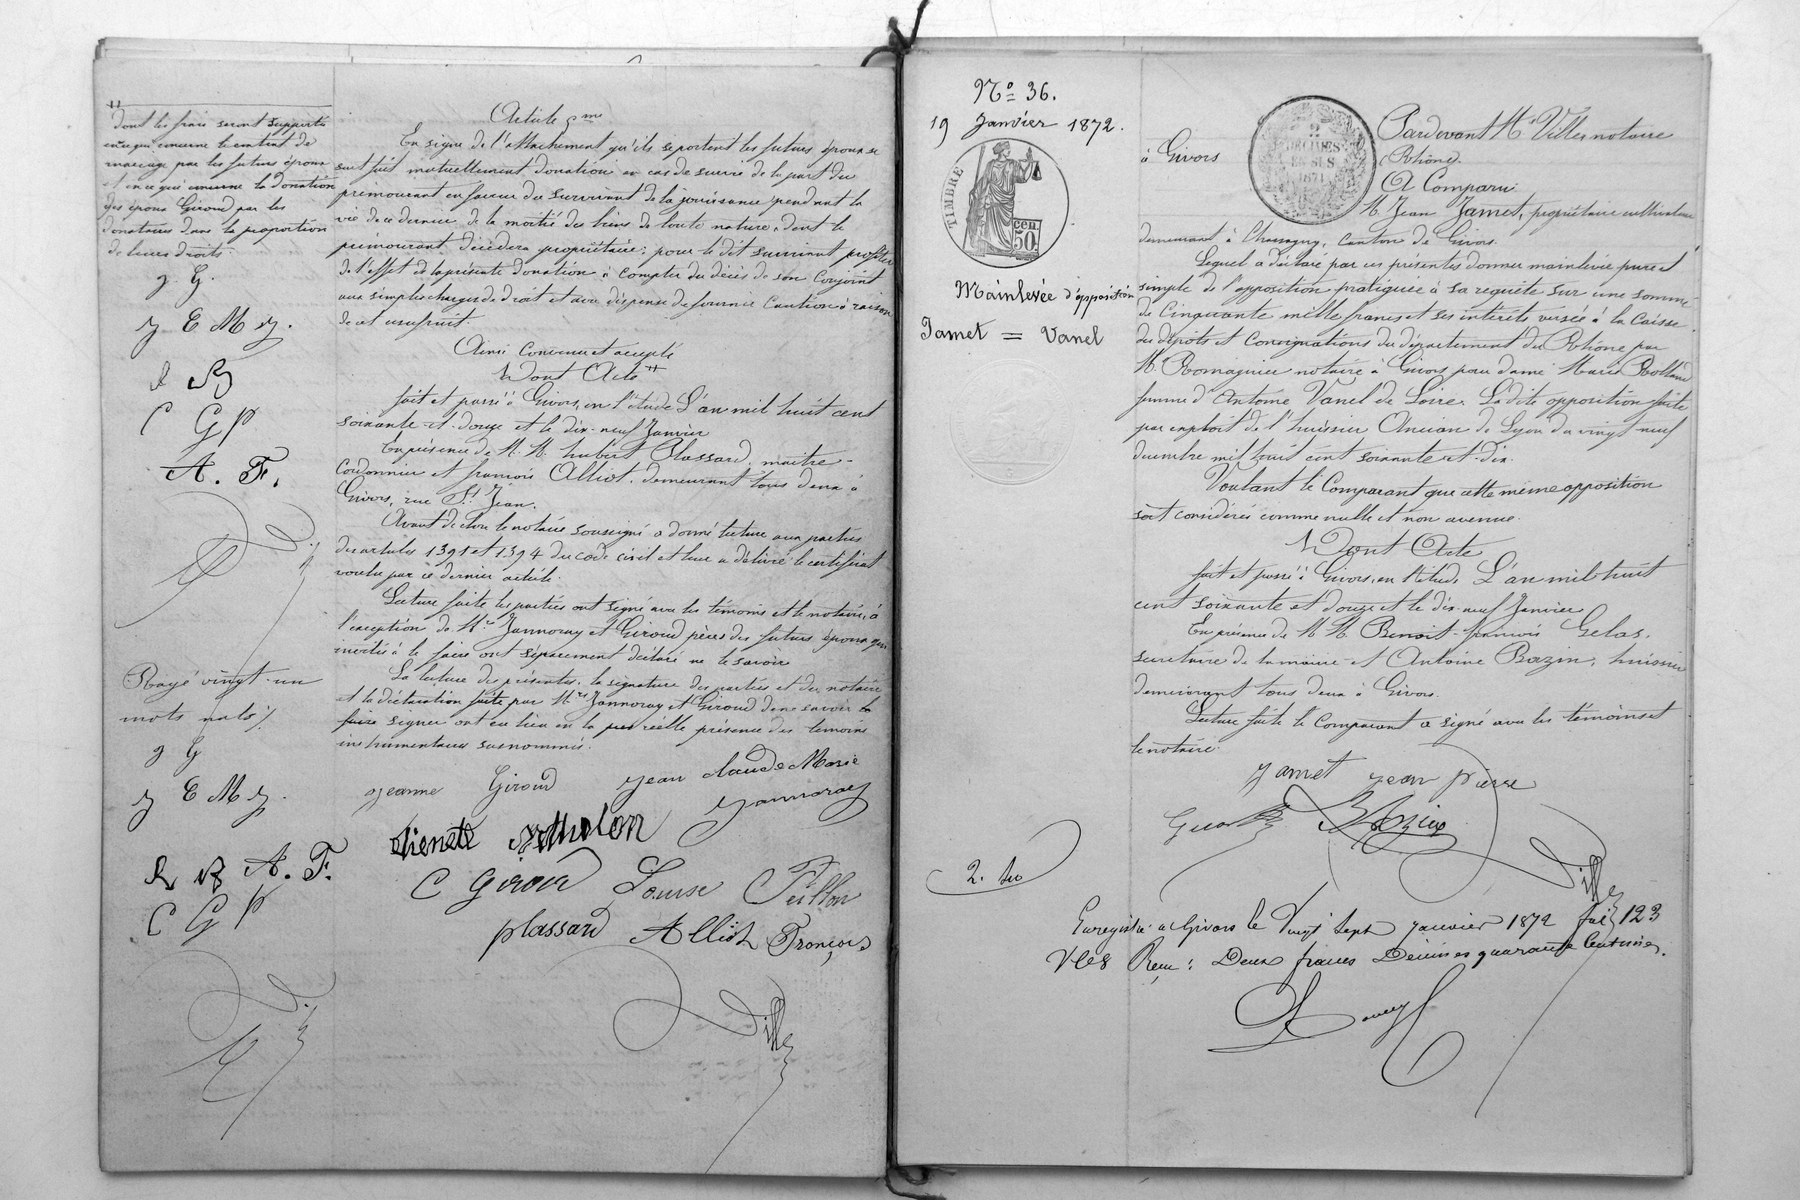 "
dont les frais seront supportés
en ce qui concerne le contrat de
mariage par les futurs époux
et en ce qui concerne la donation
des époux Giroud par les
donataires dans la proportion
de leurs droits.
g. G.
J E M J.
L B
C G P
A. F.
Rayé vingt-un
mots nuls ./.
g G
J E M J.
L B A. F.
C G P
Article me
En signe de l'attachement qu'ils se portent les futurs époux se
sont fait mutuellement donation en cas de survie de la part du
prémourant en faveur du survivant de la jouissance pendant la
vie de ce dernier de la moitié des biens de toute nature, dont le
prémourant décèdera propriétaire; pour le dit survivant profiter
de l'effet de la présente donation à compter du décès de son Conjoint
aux simples charges de droit et avec dispense de fournir Caution à raison
de cet usufruit.
Ainsi Convenu et accepté
Dont Acte "
fait et passé à Givors, en l'étude L'an mil huit cent
soixante-et-douze et le dix-neuf Janvier
En présence de M. M. hubert Plassard, maître-
Cordonnier et françois Alliot, demeurant tous deux à
Givors, rue St Jean.
Avant de clore le notaire soussigné a donné lecture aux parties
des articles 1391 et 1394 du code civil et leur a délivré le certificat
voulu par ce dernier article.
Lecture faite les parties ont signé avec les témoins et le notaire, à
l'exception de Mrs Jannoray et Giroud pères des futurs époux qui
invités à le faire ont séparément déclaré ne le savoir
La lecture des présentes, la signature des parties et du notaire
et la déclaration faite par Mrs Jannoray et Giroud de ne savoir le
faire signer ont eu lieu en la réelle présence des témoins
instrumentaires susnommés.
jeanne Giroud jean claude Marie
Jannoray
C Giroud Louise Fillon
plassard Alliot François
Ville
No 36.
19 Janvier 1872.
TIMBRE
50 cen.
Mainlevée d'opposition
Jamet = Vanel
2
DECIMES
EN SUS
1871
Pardevant Me Ville notaire
à Givors (Rhône)
A Comparu
M. Jean Jamet, propriétaire cultivateur
demeurant à Chassagny, canton de Givors.
Lequel a déclaré par ces présentes donner mainlevée pure et
simple de l'opposition pratiquée à sa requête sur une somme
de Cinquante mille francs et ses intérêts versée à la Caisse
des dépots et Consignations du département du Rhône par
Me Romagnier notaire à Givors pour dame Marie Rolland
femme d'Antoine Vanel de Loire. La dite opposition faite
par exploit de l'huissier Ancian de Lyon du vingt-neuf
decembre mil huit cent soixante et-dix.
Voulant le Comparant que cette même opposition
soit considérée comme nulle et non avenue.
Dont Acte
fait et passé à Givors, en l'étude L'an mil huit
cent soixante et douze et le dix-neuf Janvier
En présence de M M Benoit-françois Gelas,
secrétaire de la mairie et Antoine Bazin, huissier
demeurant tous deux à Givors.
Lecture faite le Comparant a signé avec les témoins et
le notaire.
jamet jean pierre
Bazin
Ville
Enregistré à Givors le Vingt Sept janvier 1872 fol 123
V C 8 Reçu: Deux francs Décimes quarante Centimes.